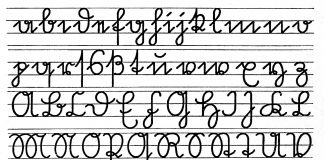 a b c d e f g h i j k l m n o
p q r ſ s ß t ŭ v w x y z
A B C D E F G H I J K L
M N O P Q R S T U V